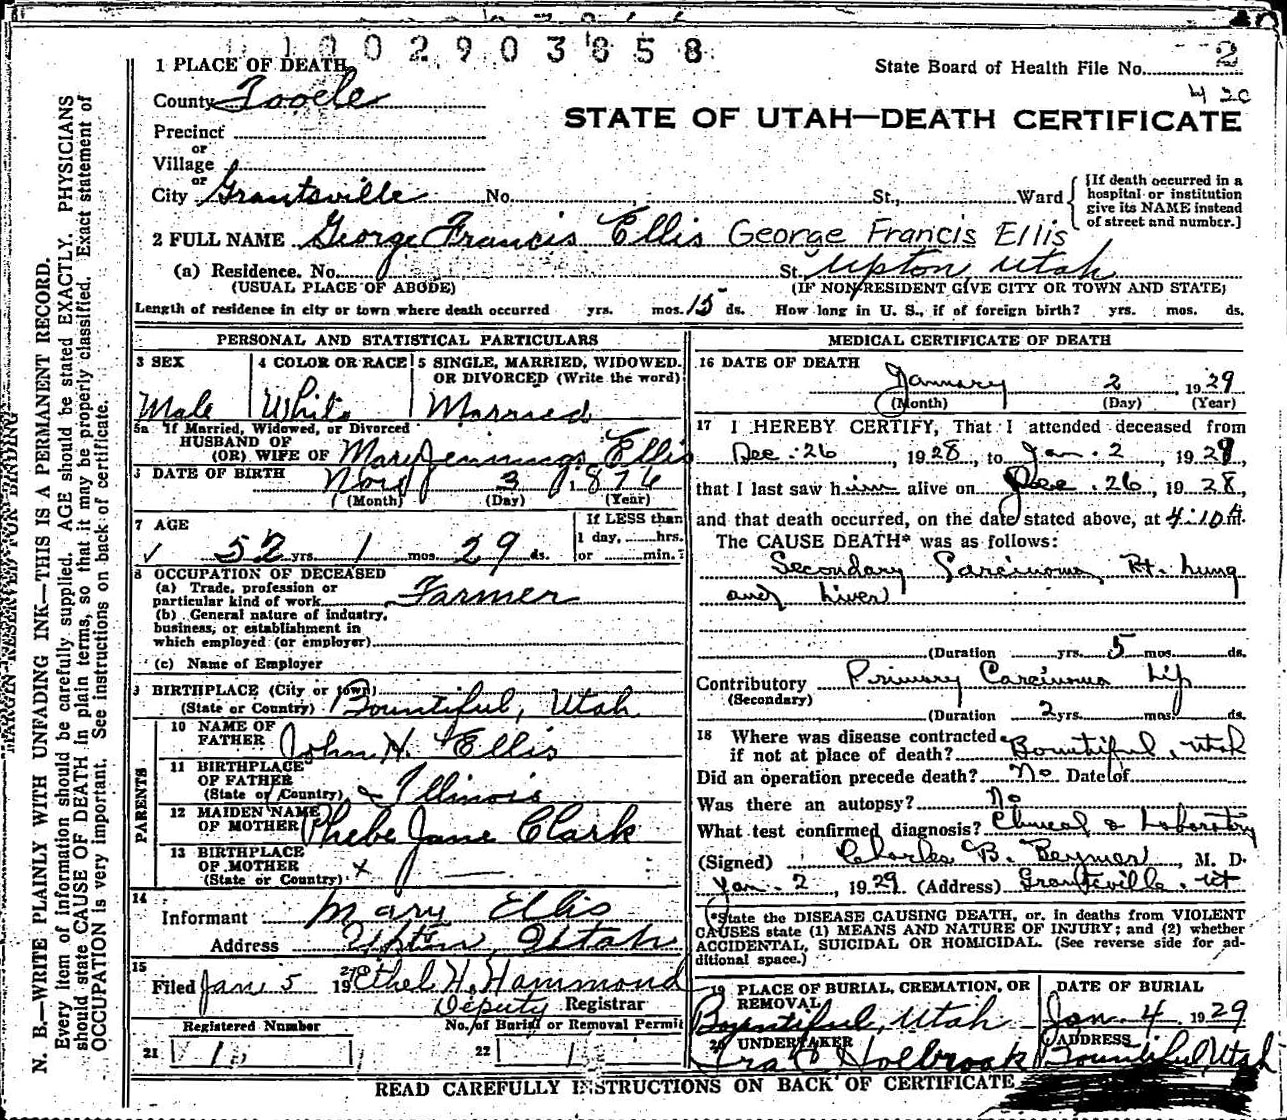 1002903858
1 PLACE OF DEATH
State Board of Health File No. 2
County Tooele
4 20
STATE OF UTAH—DEATH CERTIFICATE
Precinct
or
Village
or
City Grantsville No. St., Ward
[If death occurred in a
hospital or institution
give its NAME instead
of street and number.]
2 FULL NAME George Francis Ellis George Francis Ellis
(a) Residence. No. St. Upton Utah
(USUAL PLACE OF ABODE) (IF NON-RESIDENT GIVE CITY OR TOWN AND STATE)
Length of residence in city or town where death occurred yrs. mos. 15 ds. How long in U. S., if of foreign birth? yrs. mos. ds.
PERSONAL AND STATISTICAL PARTICULARS
3 SEX 4 COLOR OR RACE 5 SINGLE, MARRIED, WIDOWED.
OR DIVORCED (Write the word)
Male White Married
5a If Married, Widowed, or Divorced
HUSBAND OF
(OR) WIFE OF Mary Jennings Ellis
DATE OF BIRTH Nov 3 1876
(Month) (Day) (Year)
7 AGE
If LESS than
1 day, hrs.
52 yrs. 1 mos. 29 ds. or min.
8 OCCUPATION OF DECEASED
(a) Trade, profession or
particular kind of work Farmer
(b) General nature of industry,
business, or establishment in
which employed (or employer)
(c) Name of Employer
9 BIRTHPLACE (City or town)
(State or Country) Bountiful, Utah
PARENTS
10 NAME OF
FATHER John H. Ellis
11 BIRTHPLACE
OF FATHER
(State or Country) Illinois
12 MAIDEN NAME
OF MOTHER Phebe Jane Clark
13 BIRTHPLACE
OF MOTHER
(State or Country) x —
14
Informant Mary Ellis
Address Upton, Utah
15
Filed Jan 5 1929 Ethel H. Hammond
Deputy Registrar
Registered Number No. of Burial or Removal Permit
21 1 22 1
MEDICAL CERTIFICATE OF DEATH
16 DATE OF DEATH
January 2 1929
(Month) (Day) (Year)
17 I HEREBY CERTIFY, That I attended deceased from
Dec. 26, 1928, to Jan. 2, 1929,
that I last saw him alive on Dec. 26, 1928,
and that death occurred, on the date stated above, at 4:10 m.
The CAUSE DEATH* was as follows:
Secondary Carcinoma, Rt. Lung
and Liver
(Duration yrs. 5 mos. ds.
Contributory Primary Carcinoma Lip
(Secondary)
(Duration 2 yrs. mos. ds.
18 Where was disease contracted
if not at place of death? Bountiful, Utah
Did an operation precede death? No Date of
Was there an autopsy? No
What test confirmed diagnosis? Clinical & Laboratory
(Signed) Charles B. Beymer, M. D.
Jan. 2, 1929. (Address) Grantsville, Ut
*State the DISEASE CAUSING DEATH, or, in deaths from VIOLENT
CAUSES state (1) MEANS AND NATURE OF INJURY; and (2) whether
ACCIDENTAL, SUICIDAL OR HOMICIDAL. (See reverse side for ad-
ditional space.)
19 PLACE OF BURIAL, CREMATION, OR
REMOVAL
Bountiful, Utah
DATE OF BURIAL
Jan. 4 1929
20 UNDERTAKER
Holbrook
ADDRESS
Bountiful Utah
READ CAREFULLY INSTRUCTIONS ON BACK OF CERTIFICATE
MARGIN RESERVED FOR BINDING
N. B.—WRITE PLAINLY WITH UNFADING INK—THIS IS A PERMANENT RECORD.
Every item of information should be carefully supplied. AGE should be stated EXACTLY. PHYSICIANS
should state CAUSE OF DEATH in plain terms, so that it may be properly classified. Exact statement of
OCCUPATION is very important. See instructions on back of certificate.